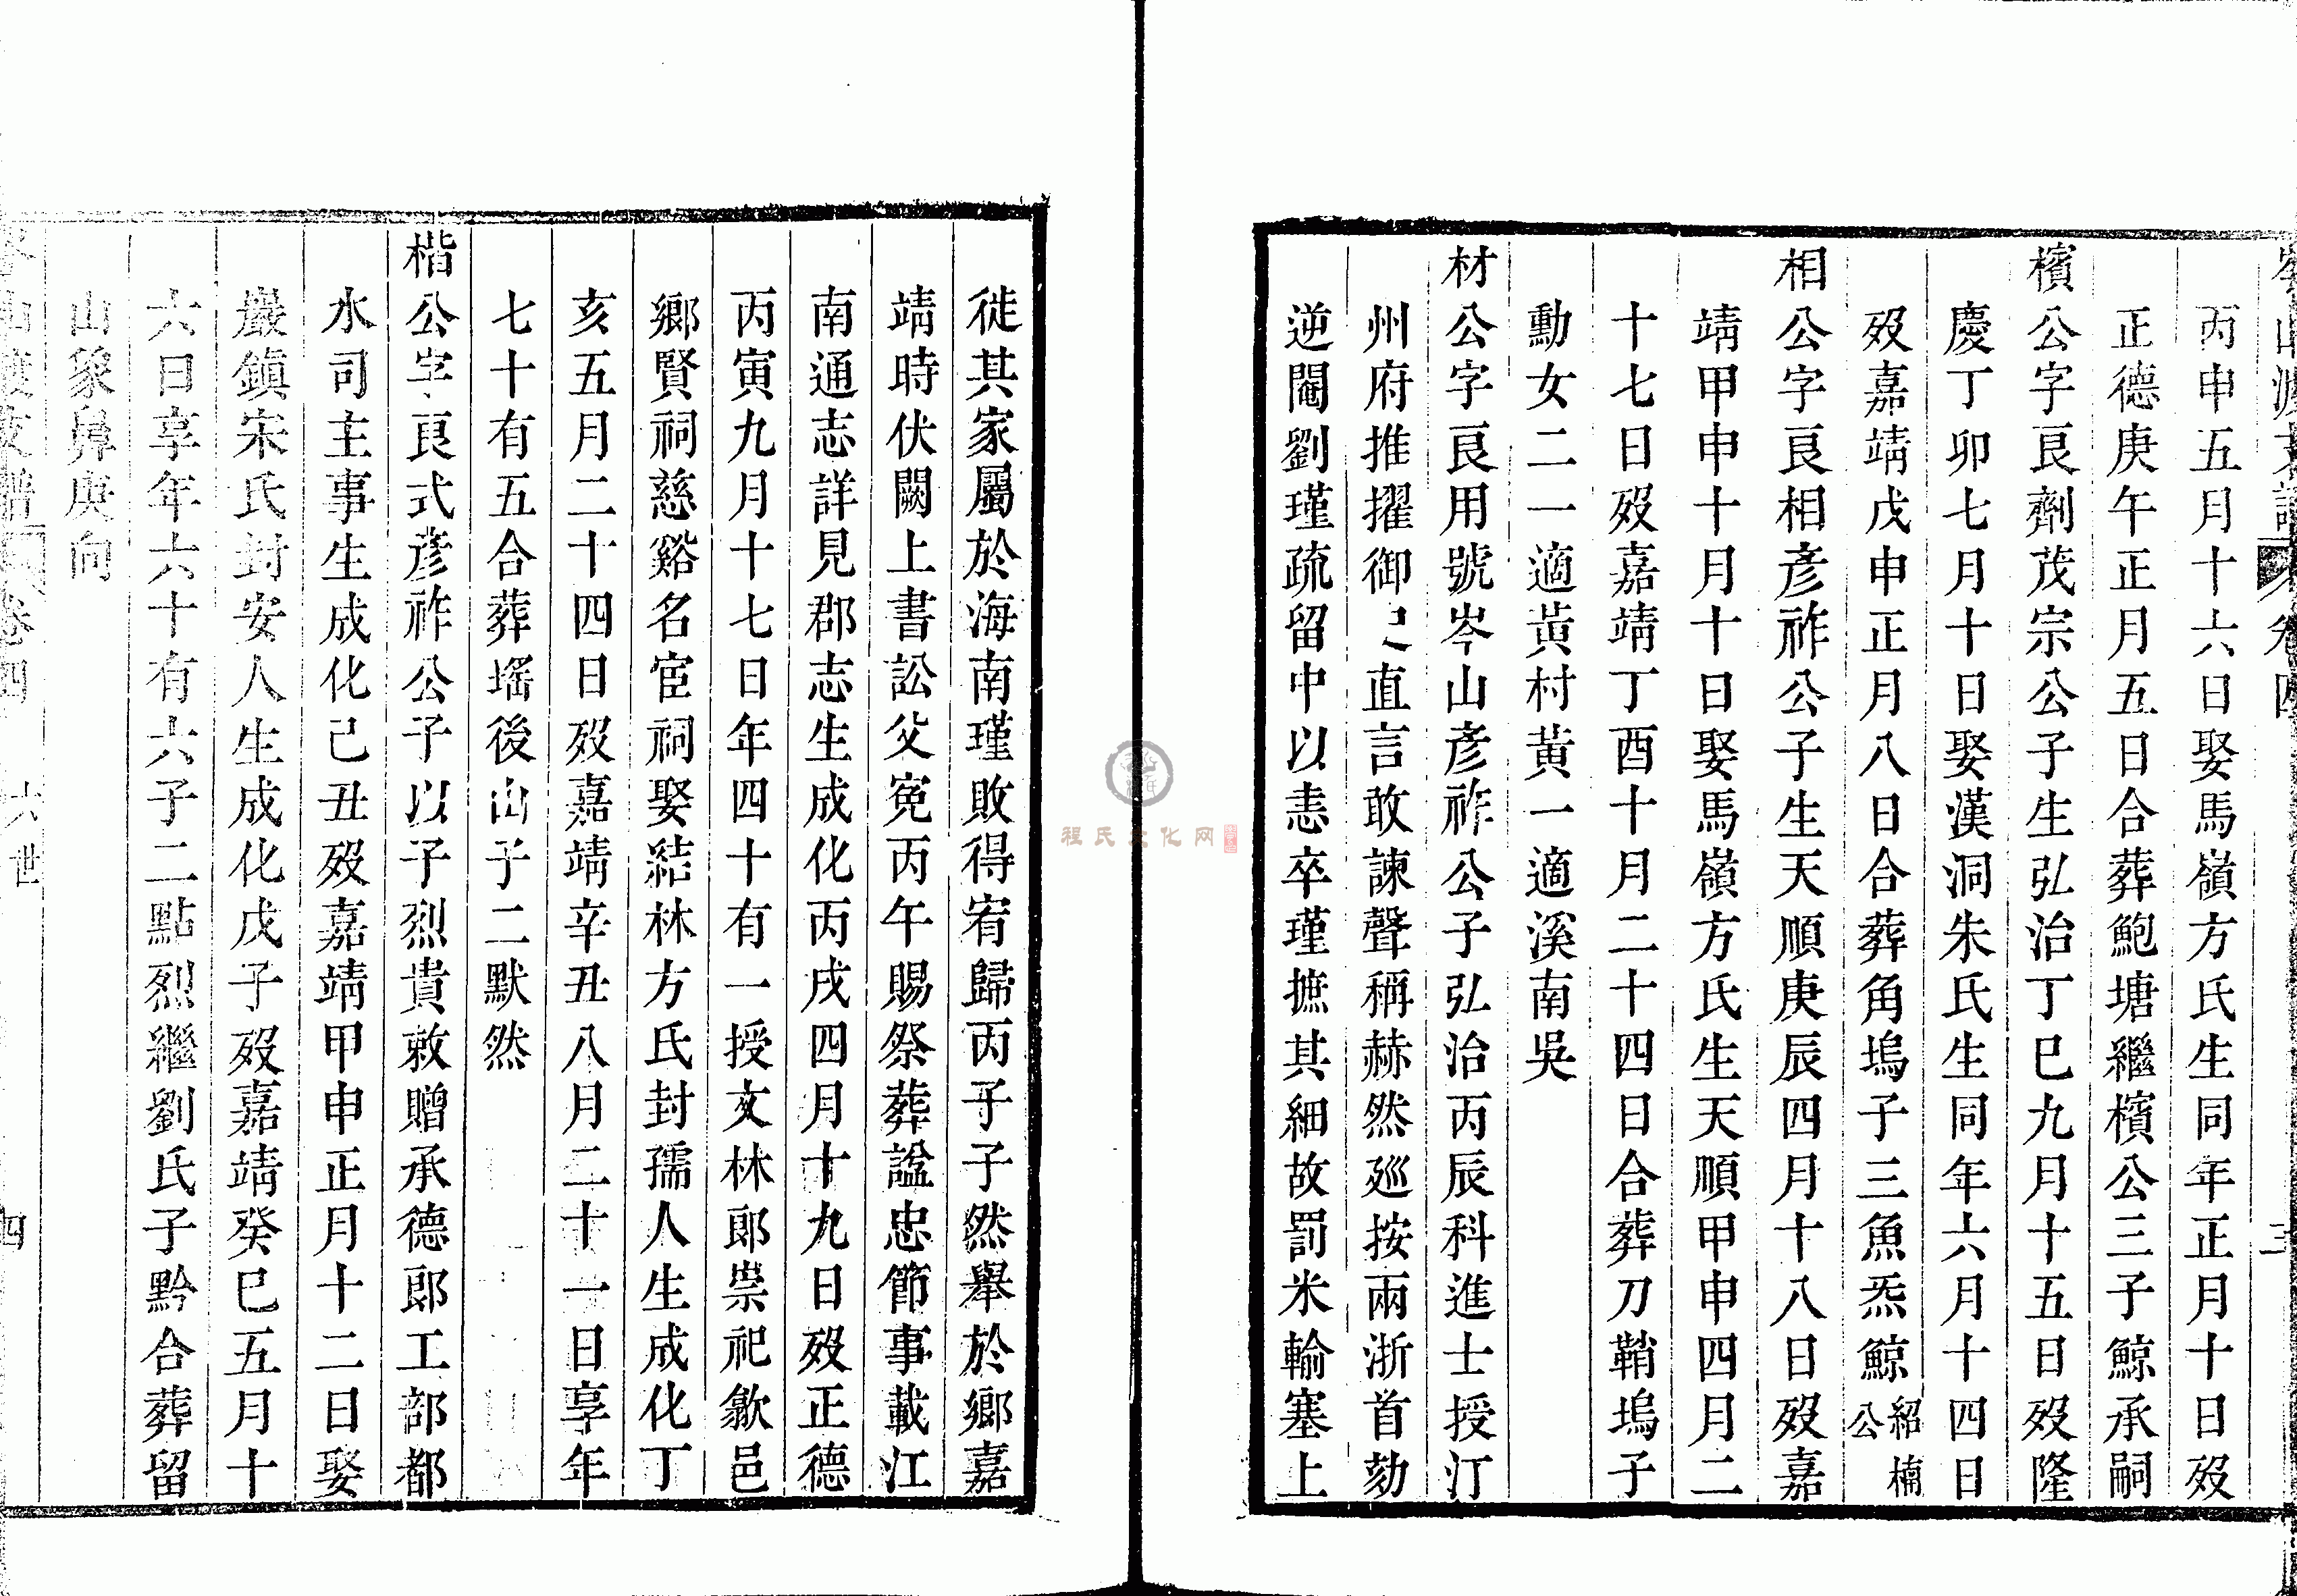 丙申五月十六日娶馬嶺方氏生同年正月十日歿
正德庚午正月五日合葬鮑塘繼檳公三子鯨承嗣
檳公字良劑茂宗公子生弘治丁巳九月十五日歿隆
慶丁卯七月十日娶漢洞朱氏生同年六月十四日
歿嘉靖戊申正月八日合葬角塢子三魚炁鯨紹楠公
相公字良相彥祚公子生天順庚辰四月十八日歿嘉
靖甲申十月十日娶馬嶺方氏生天順甲申四月二
十七日歿嘉靖丁酉十月二十四日合葬刀鞘塢子
勳女二一適黃村黃一適溪南吳
材公字良用號岑山彥祚公子弘治丙辰科進士授汀
州府推擢御史直言敢諫聲稱赫然廵按兩浙首劾
逆閹劉瑾疏留中以恚卒瑾摭其細故罰米輸塞上
徙其家屬於海南瑾敗得宥歸丙子子然舉於鄉嘉
靖時伏闕上書訟父寃丙午賜祭葬諡忠節事載江
南通志詳見郡志生成化丙戌四月十九日歿正德
丙寅九月十七日年四十有一授文林郎崇祀歙邑
鄉賢祠慈谿名宦祠娶結林方氏封孺人生成化丁
亥五月二十四日歿嘉靖辛丑八月二十一日享年
七十有五合葬瑤後山子二默然
楷公字良式彥祚公子以子烈貴敕贈承德郎工部都
水司主事生成化己丑歿嘉靖甲申正月十二日娶
巖鎮宋氏封安人生成化戊子歿嘉靖癸巳五月十
六日享年六十有六子二點烈繼劉氏子黔合葬留
山象鼻庚向
卷四 六世 四